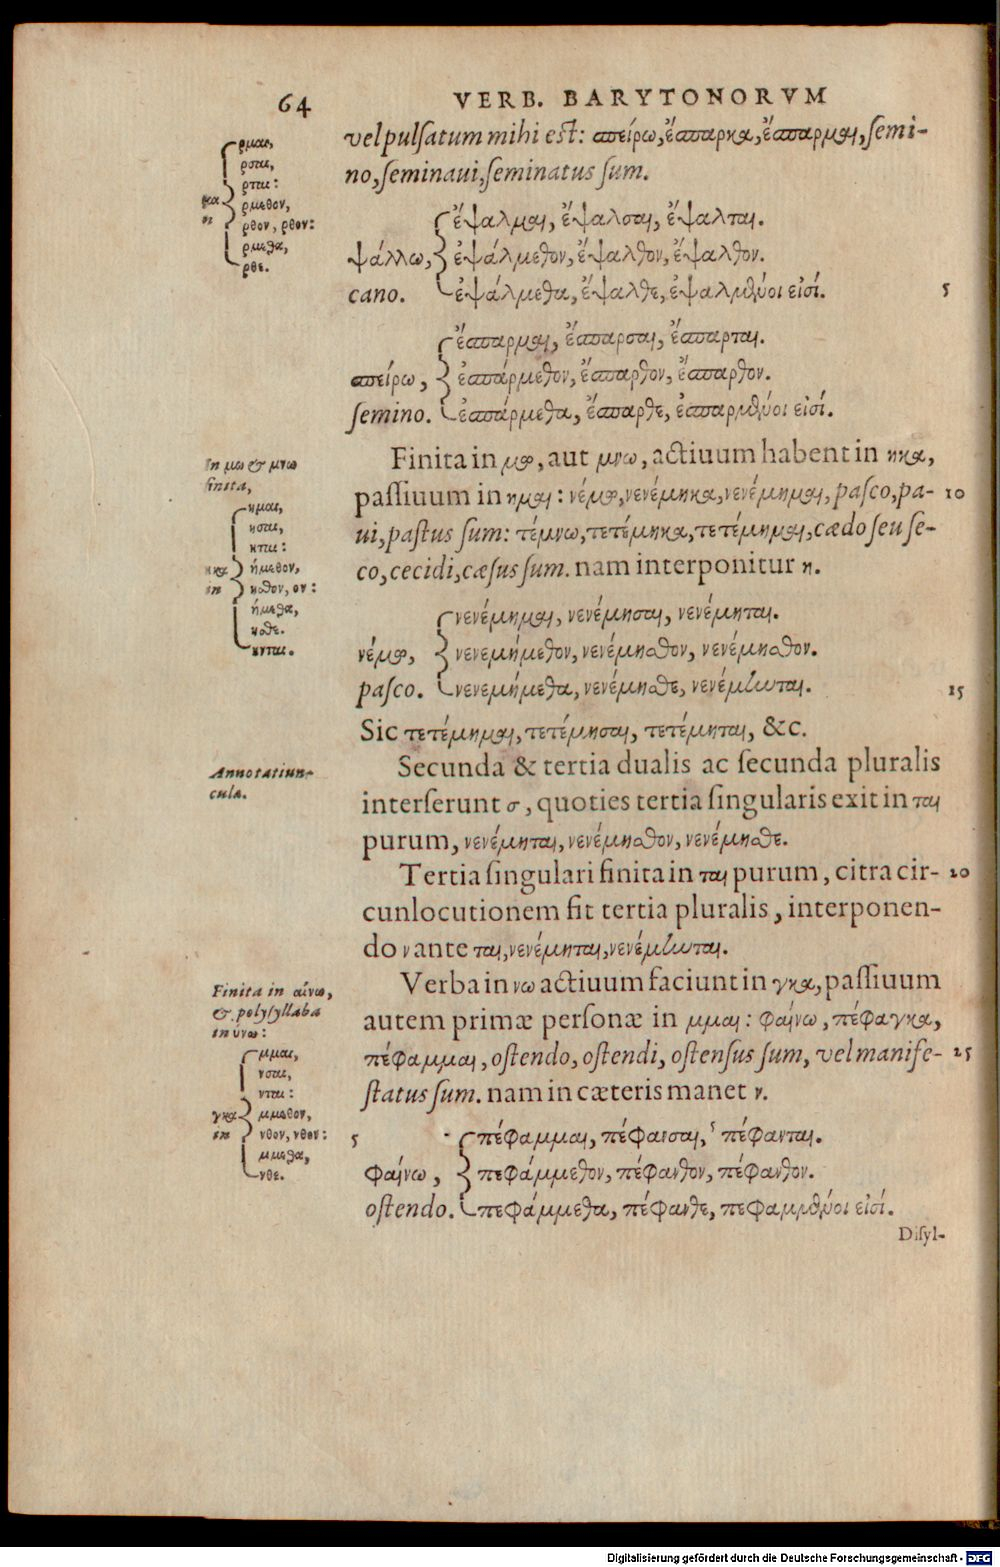 64
VERB. BARYTONORVM
vel pulſatum mihi eſt: σπείρω, ἔσπαρκα, ἔσπαρμαι, ſemi-
no, ſeminaui, ſeminatus ſum.
ρμαι,
ρσαι,
ρται:
κα
ρμεθον,
ρθον, ρθον:
ρμεθα,
ρθε.
ἔψαλμαι, ἔψαλσαι, ἔψαλται.
ψάλλω, ἐψάλμεθον, ἔψαλθον, ἔψαλθον.
cano. ἐψάλμεθα, ἔψαλθε, ἐψαλμένοι εἰσί. 5
ἔσπαρμαι, ἔσπαρσαι, ἔσπαρται.
σπείρω, ἐσπάρμεθον, ἔσπαρθον, ἔσπαρθον.
ſemino. ἐσπάρμεθα, ἔσπαρθε, ἐσπαρμένοι εἰσί.
Finita in μω, aut μνω, actiuum habent in ηκα,
paſſiuum in ημαι: νέμω, νενέμηκα, νενέμημαι, paſco, pa- 10
ui, paſtus ſum: τέμνω, τετέμηκα, τετέμημαι, cædo ſeu ſe-
co, cecidi, cæſus ſum. nam interponitur η.
In μω & μνω
finita,
ημαι,
ησαι,
ηται:
ηκα ήμεθον,
in ηθον, ον:
ήμεθα,
ησθε.
ηνται.
νενέμημαι, νενέμησαι, νενέμηται.
νέμω, νενεμήμεθον, νενέμησθον, νενέμησθον.
paſco. νενεμήμεθα, νενέμησθε, νενέμηνται. 15
Sic τετέμημαι, τετέμησαι, τετέμηται, &c.
Annotatiun-
cula.
Secunda & tertia dualis ac ſecunda pluralis
interſerunt σ, quoties tertia ſingularis exit in ται
purum, νενέμηται, νενέμησθον, νενέμησθε.
Tertia ſingulari finita in ται purum, citra cir- 20
cunlocutionem fit tertia pluralis, interponen-
do ν ante ται, νενέμηται, νενέμηνται.
Verba in νω actiuum faciunt in γκα, paſſiuum
autem primæ perſonæ in μμαι: φαίνω, πέφαγκα,
πέφαμμαι, oſtendo, oſtendi, oſtenſus ſum, vel manife- 25
ſtatus ſum. nam in cæteris manet ν.
Finita in αίνω,
& polyſyllaba
in ύνω:
μμαι,
νσαι,
νται:
γκα μμεθον,
in νθον, νθον:
μμεθα,
νθε.
5
πέφαμμαι, πέφανσαι, πέφανται.
φαίνω, πεφάμμεθον, πέφανθον, πέφανθον.
oſtendo. πεφάμμεθα, πέφανθε, πεφαμμένοι εἰσί.
Diſyl-
Digitalisierung gefördert durch die Deutsche Forschungsgemeinschaft - DFG